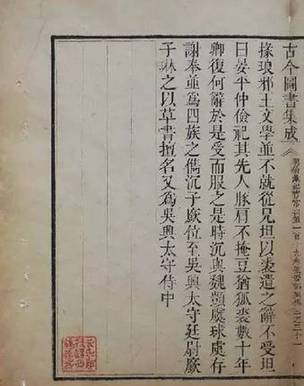 古今圖書集成
掾琅邪王文學並不就從兄坦以裘遺之辭不受坦
曰晏平仲儉祀其先人豚肩不掩豆猶狐裘數十年
卿復何辭於是受而服之是時沉與魏顗虞球虞存
謝奉並為四族之儁沉子廞位至吳興太守廷尉廞
子琳之以草書擅名又為吳興太守侍中